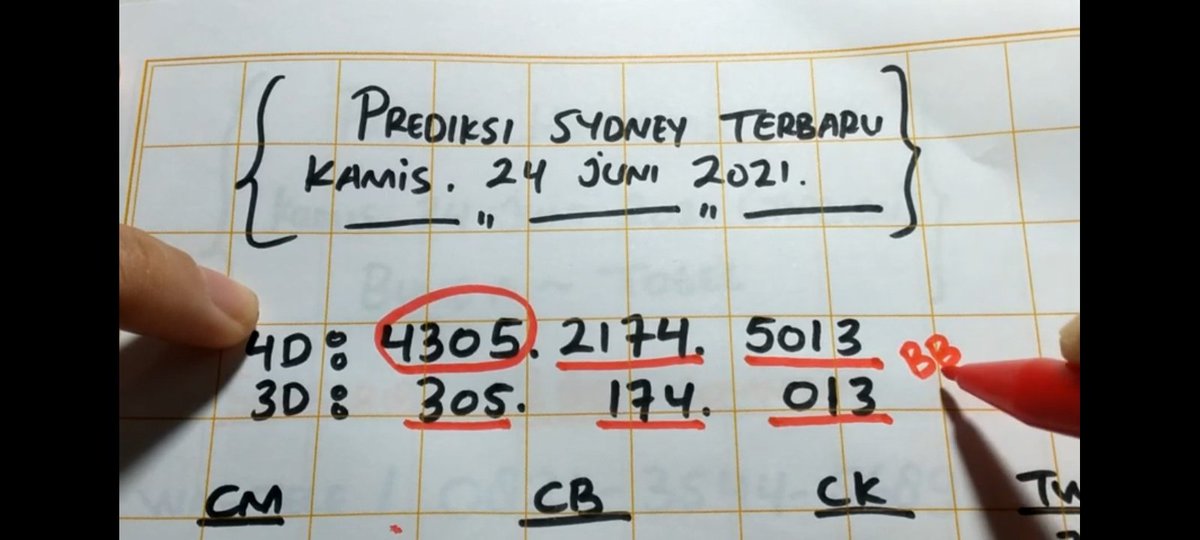 PREDIKSI SYDNEY TERBARU
KAMIS. 24 JUNI 2021.
4D: 4305. 2174. 5013 BB
3D: 305. 174. 013
CM CB CK